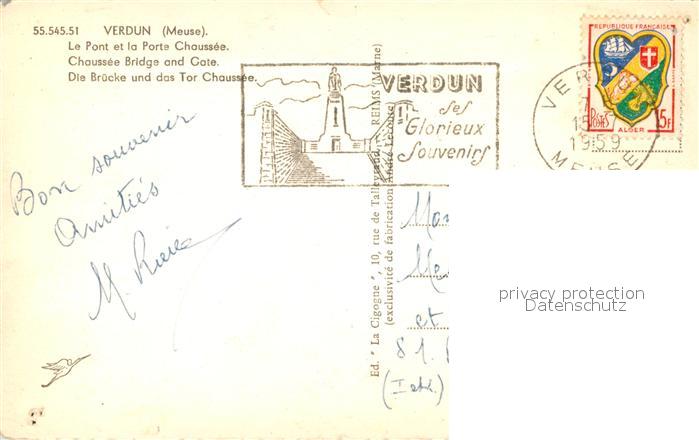 55.545.51 VERDUN (Meuse).
Le Pont et la Porte Chaussée.
Chaussée Bridge and Gate.
Die Brücke und das Tor Chaussée.
VERDUN
Ses
Glorieux
Souvenirs
REPUBLIQUE FRANÇAISE
POSTES 15F
ALGER
VER
15
1959
MEUSE
Bon souvenir
Amitiés
M.
Ed. " La Cigogne ", 10, rue de Talleyrand, REIMS (Marne)
(exclusivité de fabrication André Leconte)
Mon
Me
et
81.
privacy protection
Datenschutz